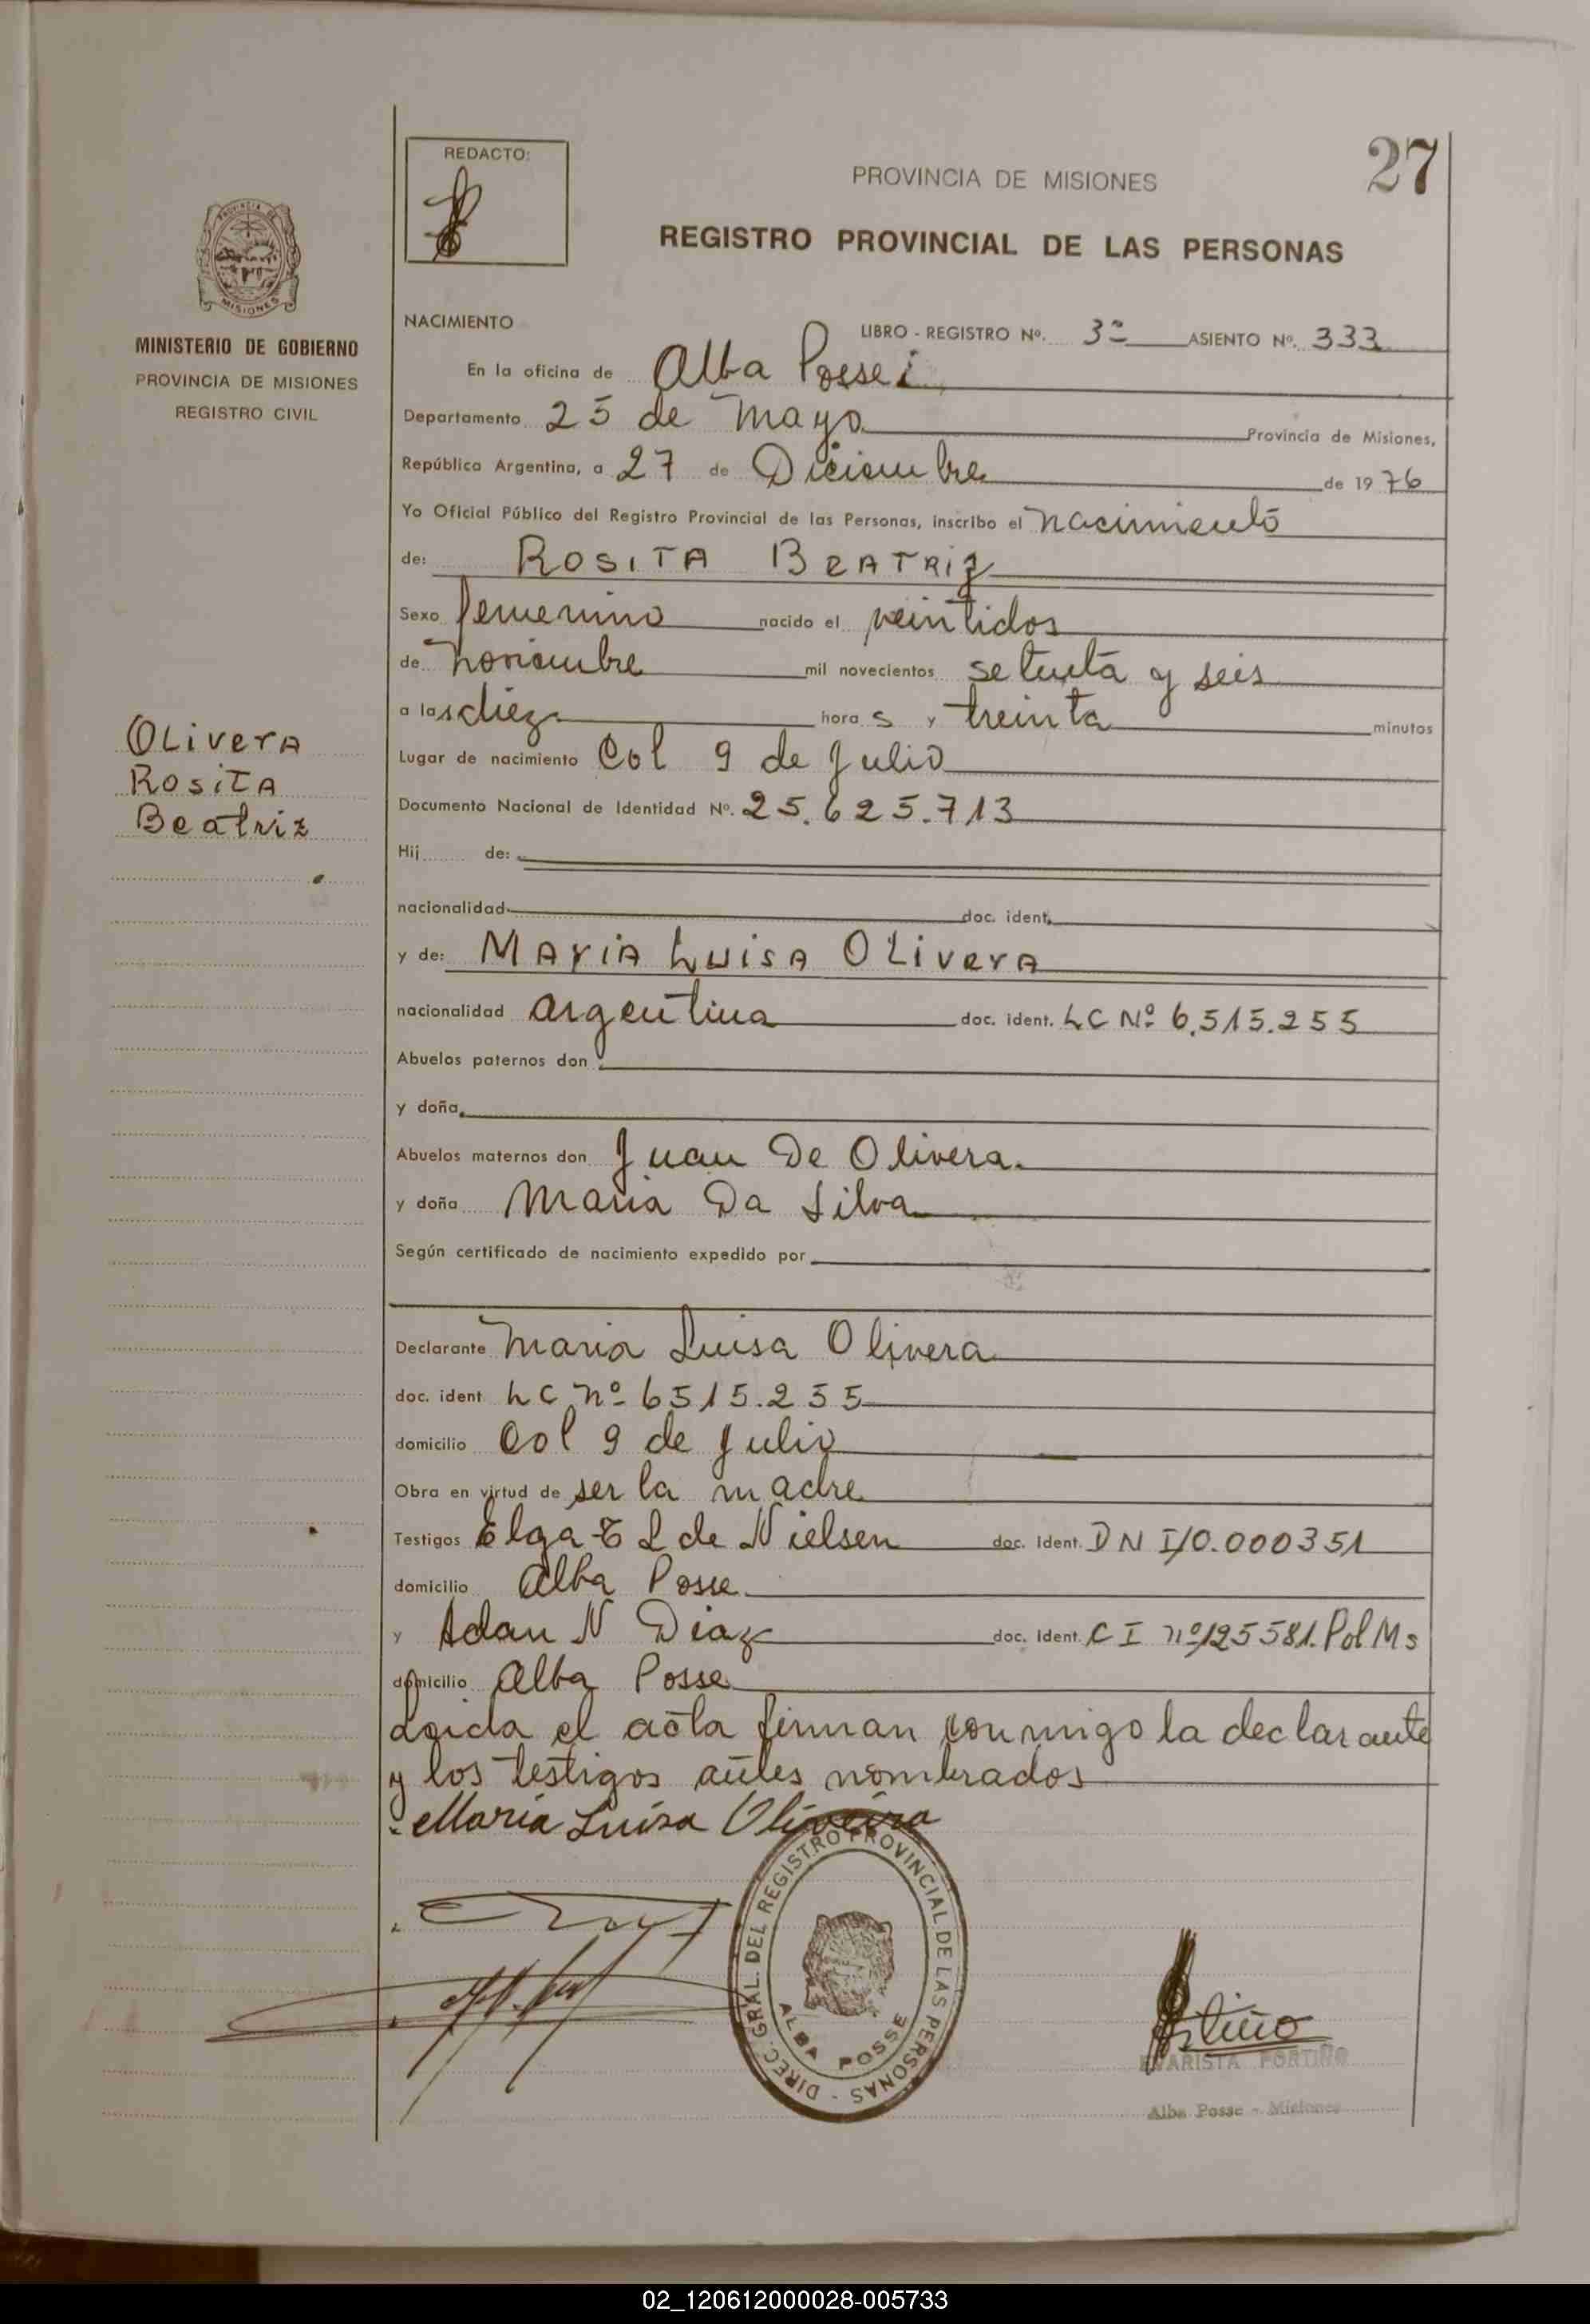 REDACTO:
PROVINCIA DE MISIONES
27
REGISTRO PROVINCIAL DE LAS PERSONAS
PROVINCIA DE
MISIONES
MINISTERIO DE GOBIERNO
PROVINCIA DE MISIONES
REGISTRO CIVIL
NACIMIENTO
LIBRO - REGISTRO Nº. 3º ASIENTO Nº. 333
En la oficina de Alba Posse
Departamento 25 de Mayo Provincia de Misiones,
República Argentina, a 27 de Diciembre de 1976
Yo Oficial Público del Registro Provincial de las Personas, inscribo el nacimiento
de: ROSITA BEATRIZ
Sexo femenino nacido el veintidos
de noviembre mil novecientos setenta y seis
a las diez hora s y treinta minutos
Olivera
Rosita
Beatriz
Lugar de nacimiento Col 9 de Julio
Documento Nacional de Identidad Nº. 25.625.713
Hij de:
nacionalidad doc. ident.
y de: Maria Luisa Olivera
nacionalidad argentina doc. ident. LC Nº 6.515.255
Abuelos paternos don
y doña
Abuelos maternos don Juan De Olivera
y doña Maria Da Silva
Según certificado de nacimiento expedido por
Declarante Maria Luisa Olivera
doc. ident LC nº 6515.255
domicilio Col 9 de Julio
Obra en virtud de ser la madre
Testigos Elga E L de Nielsen doc. Ident. DN I 10.000351
domicilio Alba Posse
y Adan N Diaz doc. Ident. C I nº 125581. Pol Ms
domicilio Alba Posse
Leida el acta firman conmigo la declarante
y los testigos antes nombrados
Maria Luisa Oliveira
DIREC. GRAL. DEL REGISTRO PROVINCIAL DE LAS PERSONAS -
ALBA POSSE
EVARISTA FORTIÑO
Alba Posse - Misiones
02_120612000028-005733